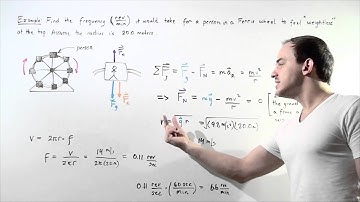 Example: Find the frequency (rev/min) it would take for a person in a Ferris wheel to feel "weightless"
at the top. Assume the radius is 20.0 meters.
person
F_N
F_g
ΣF = F_g - F_N = m a_R = mv²/r
=> F_N = mg - mv²/r = 0
the ground
a force
= √(9.8 m/s²)(20.0 m)
14 m/s
V = 2πr · f
F = V/2πr = 14 m/s / 2π(20.0) = 0.11 rev/sec
0.11 rev/sec · (60 sec/min) = 6.6 rev/min